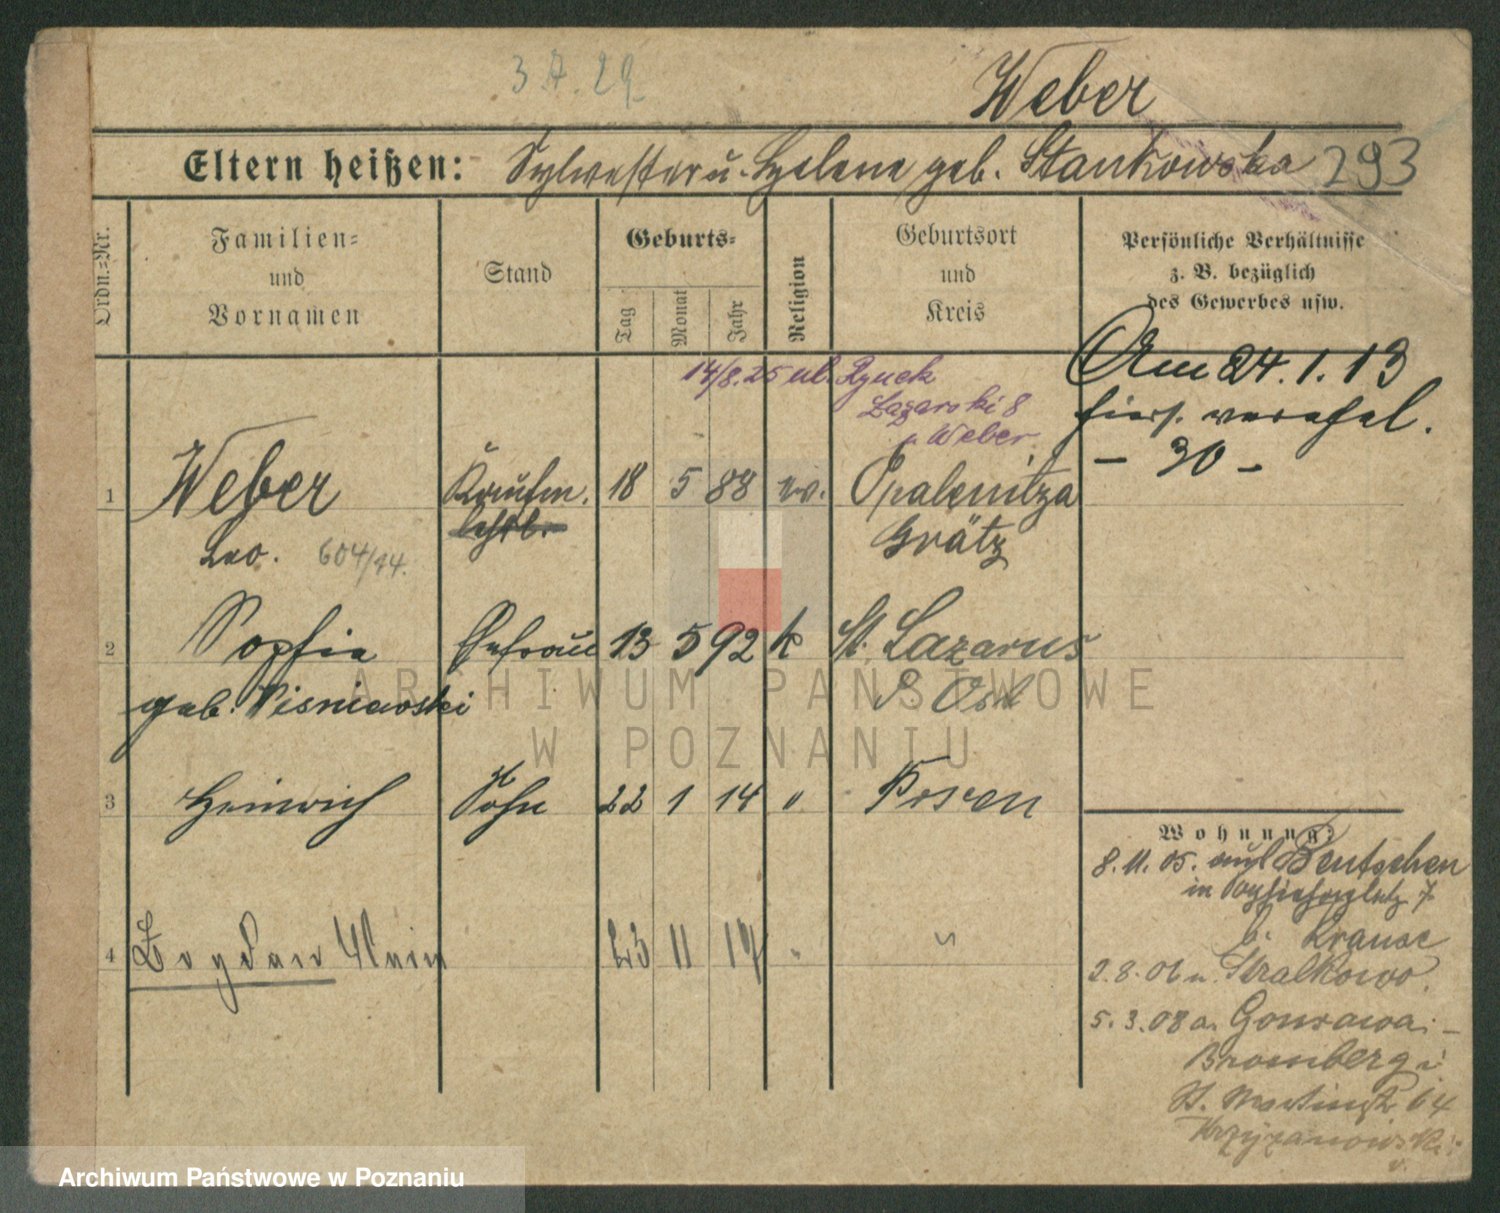 3.7.29
Weber
Eltern heißen: Sylvester u. Helene geb. Stankowska 293
Ordn.=Nr.
Familien=
und
Vornamen
Stand
Geburts=
Tag
Monat
Jahr
Religion
Geburtsort
und
Kreis
Persönliche Verhältnisse
z. B. bezüglich
des Gewerbes usw.
14/8.25 ul. Rynek
Lazarski 8
Weber
Am 24.1.13
hier verehel.
- 30 -
1 Weber Kaufm. 18 5 88 Opalenitza
Leo. 604/14. Grätz
2 Sophie Ehefrau 13 5 92 k St. Lazarus
geb. Wisniewski P. Ost
3 Heinrich Sohn 22 1 14 " Posen
4 Bogdan 23 11 17 "
Wohnung:
8.11.05. aus Bentschen
in 7
b. Krause
2.8.06 n. Stralkowo.
5.3.08 a. Gonsawa-
Bromberg
St. Martinstr. 64
Krzyzanowski
ARCHIWUM PAŃSTWOWE
W POZNANIU
Archiwum Państwowe w Poznaniu